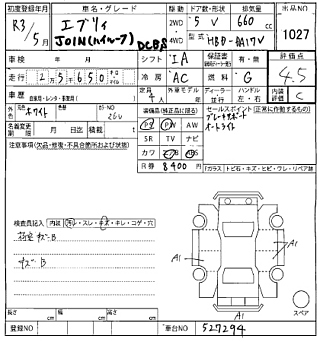 初度登録年月 車名・グレード 駆動 ドア数・形状 排気量 出品NO
R3/5月 エブリィ JOIN(ハイルーフ) DCBS 2WD 4WD 5 V 660 cc 1027
型式 HBD-DA17V
車検 年 月 シフト IA 保証書 評価点
走行 2万5千650 冷房 AC 燃料 G 4.5
車歴 自家用・レンタル・事業用 定員 4 外車モデル ディーラー 並行 ハンドル 左・右 内装 C
外色 ホワイト カラーNO 26U 装備品(純正品に限る) セールスポイント(正常に作動するもの)
名義変更 月 日迄 積載 t PS PW AW ブレーキサポート
注意事項(欠品・修復・不具合箇所および状態) SR TV ナビ オートライト
カワ ABS
R券 8400 円
(ガラス)トビ石・キズ・ヒビ・ワレ・リペア跡
検査員記入 内装 汚・スレ・キズ・キレ・コゲ・穴
荷室キズB
キズB
A1
A1
A1
スペア
長さ cm 幅 cm 高さ cm
登録NO 車台NO 527294